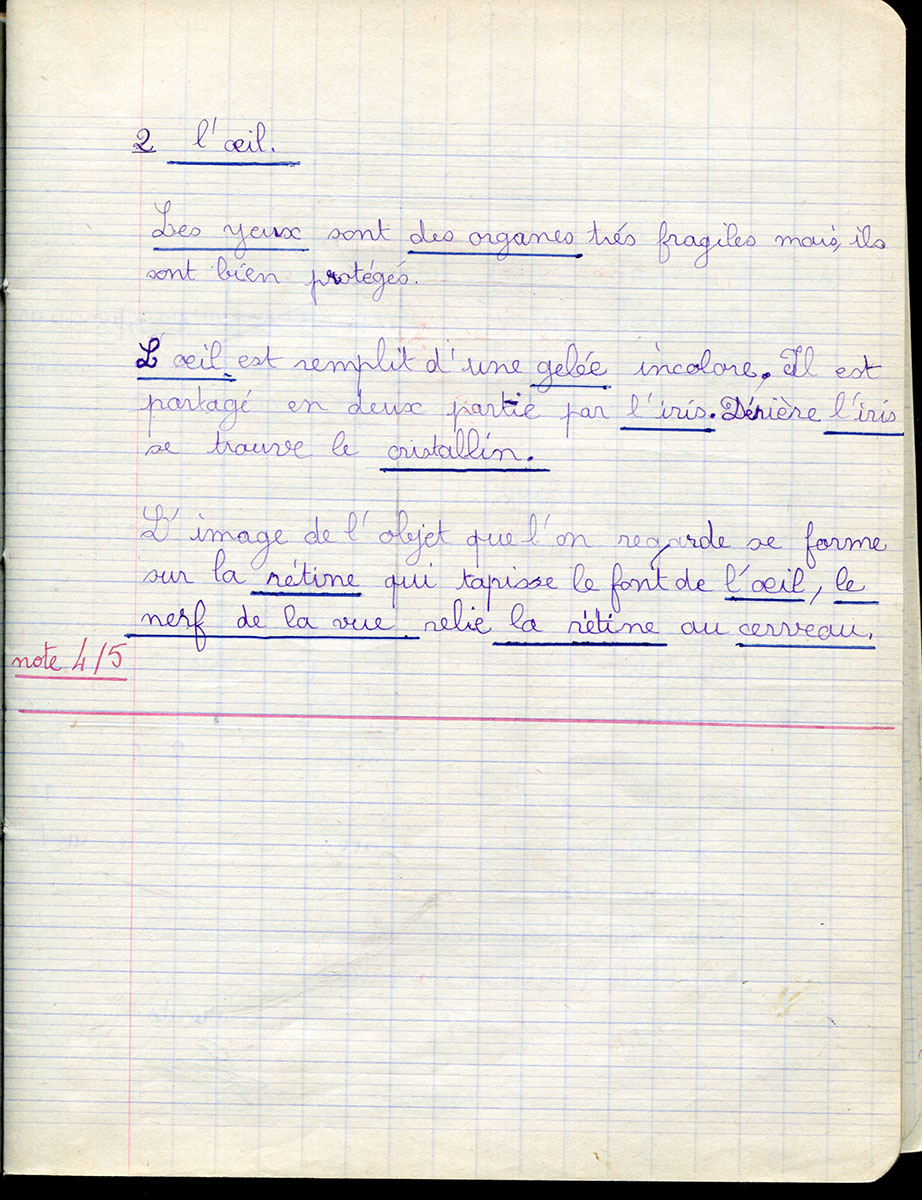 2 l'œil.
Les yeux sont des organes trés fragiles mais, ils
sont bien protégés.
L'œil est remplit d'une gelée incolore. Il est
partagé en deux partie par l'iris. Dérière l'iris
se trouve le cristallin.
L'image de l'objet que l'on regarde se forme
sur la rétine qui tapisse le font de l'œil, le
nerf de la vue relie la rétine au cerveau.
note 4/5